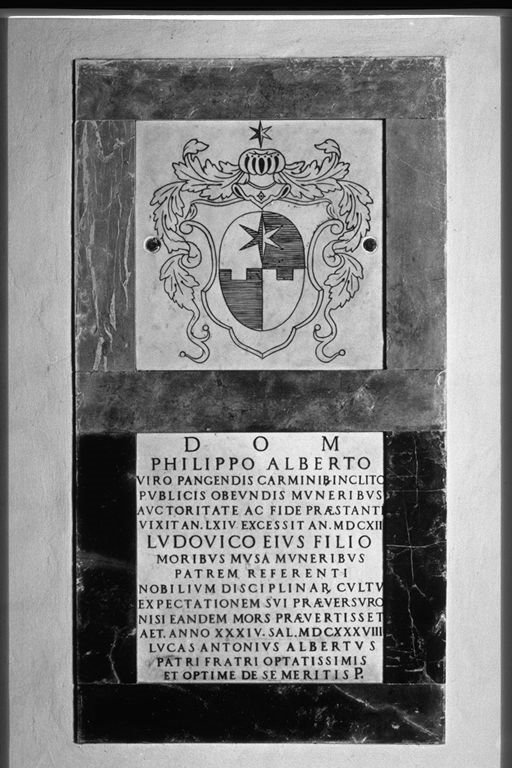 D O M
PHILIPPO ALBERTO
VIRO PANGENDIS CARMINIB·INCLITO
PVBLICIS OBEVNDIS MVNERIBVS
AVCTORITATE AC FIDE PRÆSTANTI
VIXIT AN. LXIV EXCESSIT AN. MDCXII
LVDOVICO EIVS FILIO
MORIBVS MVSA MVNERIBVS
PATREM REFERENTI
NOBILIVM DISCIPLINAR CVLTV
EXPECTATIONEM SVI PRÆVERSVRO
NISI EANDEM MORS PRÆVERTISSET
AET. ANNO XXXIV. SAL. MDCXXXVIII
LVCAS ANTONIVS ALBERTVS
PATRI FRATRI OPTATISSIMIS
ET OPTIME DE SE MERITIS P.